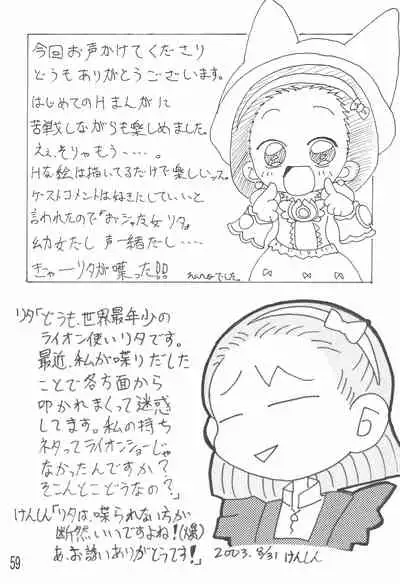 今回お声かけてくださり
どうもありがとうございます。
はじめてのHまんがに
苦戦しながらも楽しめました。
ええ、そりゃもう・・・・。
Hな絵は描いてるだけで楽しいっス。
ゲストコメントは好きにしていいと
言われたので「おジャ女リタ。」
幼女だし 声一緒だし・・・・
きゃーリタが喋った!!
でした。
リタ「どうも、世界最年少の
ライオン使いリタです。
最近、私が喋りだした
ことで各方面から
叩かれまくって迷惑
してます。私の持ち
ネタってライオンショーじゃ
なかったんですか?
そこんとこどうなの?」
けんしん「リタは、喋られない方が
断然、いいですよね!(爆)
あ、お誘いありがとうです!」
2003. 8/31 けんしん
59